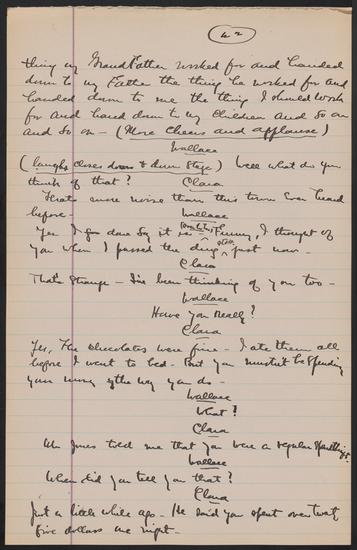 42
thing my Grandfather worked for and handed
down to my Father the thing he worked for and
handed down to me the thing I should work
for and hand down to my children and so on
and so on - (More Cheers and applause)
Wallace
(laughs closes down & down stage) Well what do you
think of that?
Clara
Thats more noise than this town Ever heard
before -
Wallace
Yes I dare Say it is - Funny, I thought of
you when I passed the drug store just now -
Clara
That's Strange - I've been thinking of you too -
Wallace
Have you Really?
Clara
Yes, The chocolates were fine - I ate them all
before I went to bed - But you mustn't be Spending
your money the way you do -
Wallace
What?
Clara
Mr Jones told me that you were a regular Spendthrift.
Wallace
When did you tell you that?
Clara
Just a little while ago - He said you spent over twenty
five dollars one night -